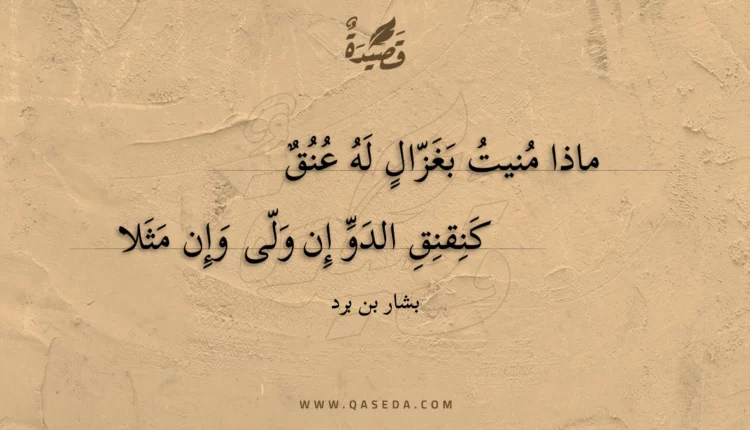 قَصِيدَةٌ
ماذا مُنيتُ بَغَزّالٍ لَهُ عُنُقٌ
كَنِقنِقِ الدَوِّ إِن وَلّى وَإِن مَثَلا
بشار بن برد
WWW.QASEDA.COM